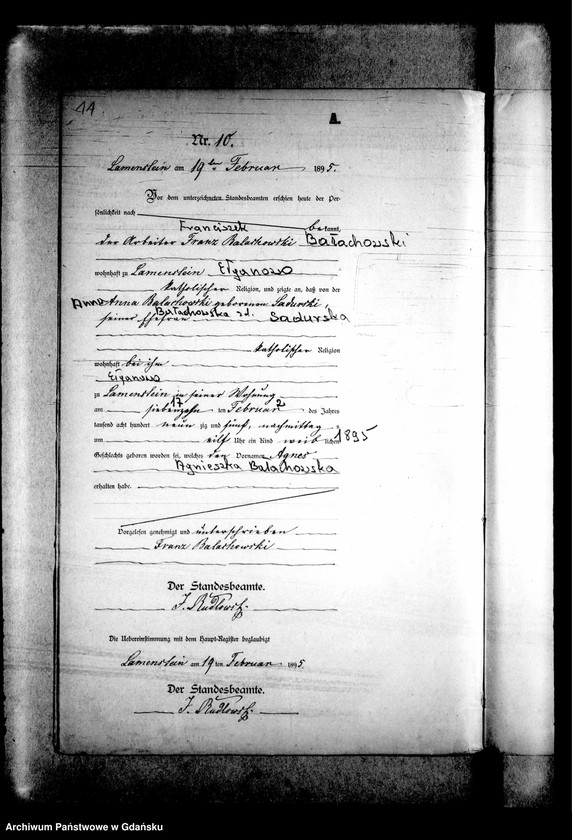 44
A.
Nr. 10.
Lamenstein am 19ten Februar 1895.
Vor dem unterzeichneten Standesbeamten erschien heute der Per-
sönlichkeit nach
Franciszek bekannt,
der Arbeiter Franz Balachowski Bałachowski
wohnhaft zu Lamenstein Ełganowo
katholischer Religion, und zeigte an, daß von der
Anna Anna Balachowski geborenen Sadurski,
seiner Ehefrau Bałachowska zd. Sadurska
katholischer Religion
wohnhaft bei ihm
Ełganowo
zu Lamenstein in seiner Wohnung
17 2
am siebenzehn ten Februar des Jahres
tausend acht hundert neun zig und fünf, nachmittag s
um eilf Uhr ein Kind weib lichen 1895
Geschlechts geboren worden sei, welches den Vornamen Agnes
Agnieszka Bałachowska
erhalten habe.
Vorgelesen genehmigt und unterschrieben
Franz Balachowski
Der Standesbeamte.
Die Uebereinstimmung mit dem Haupt-Register beglaubigt
Lamenstein am 19 ten Februar 1895.
Der Standesbeamte.
Archiwum Państwowe w Gdańsku